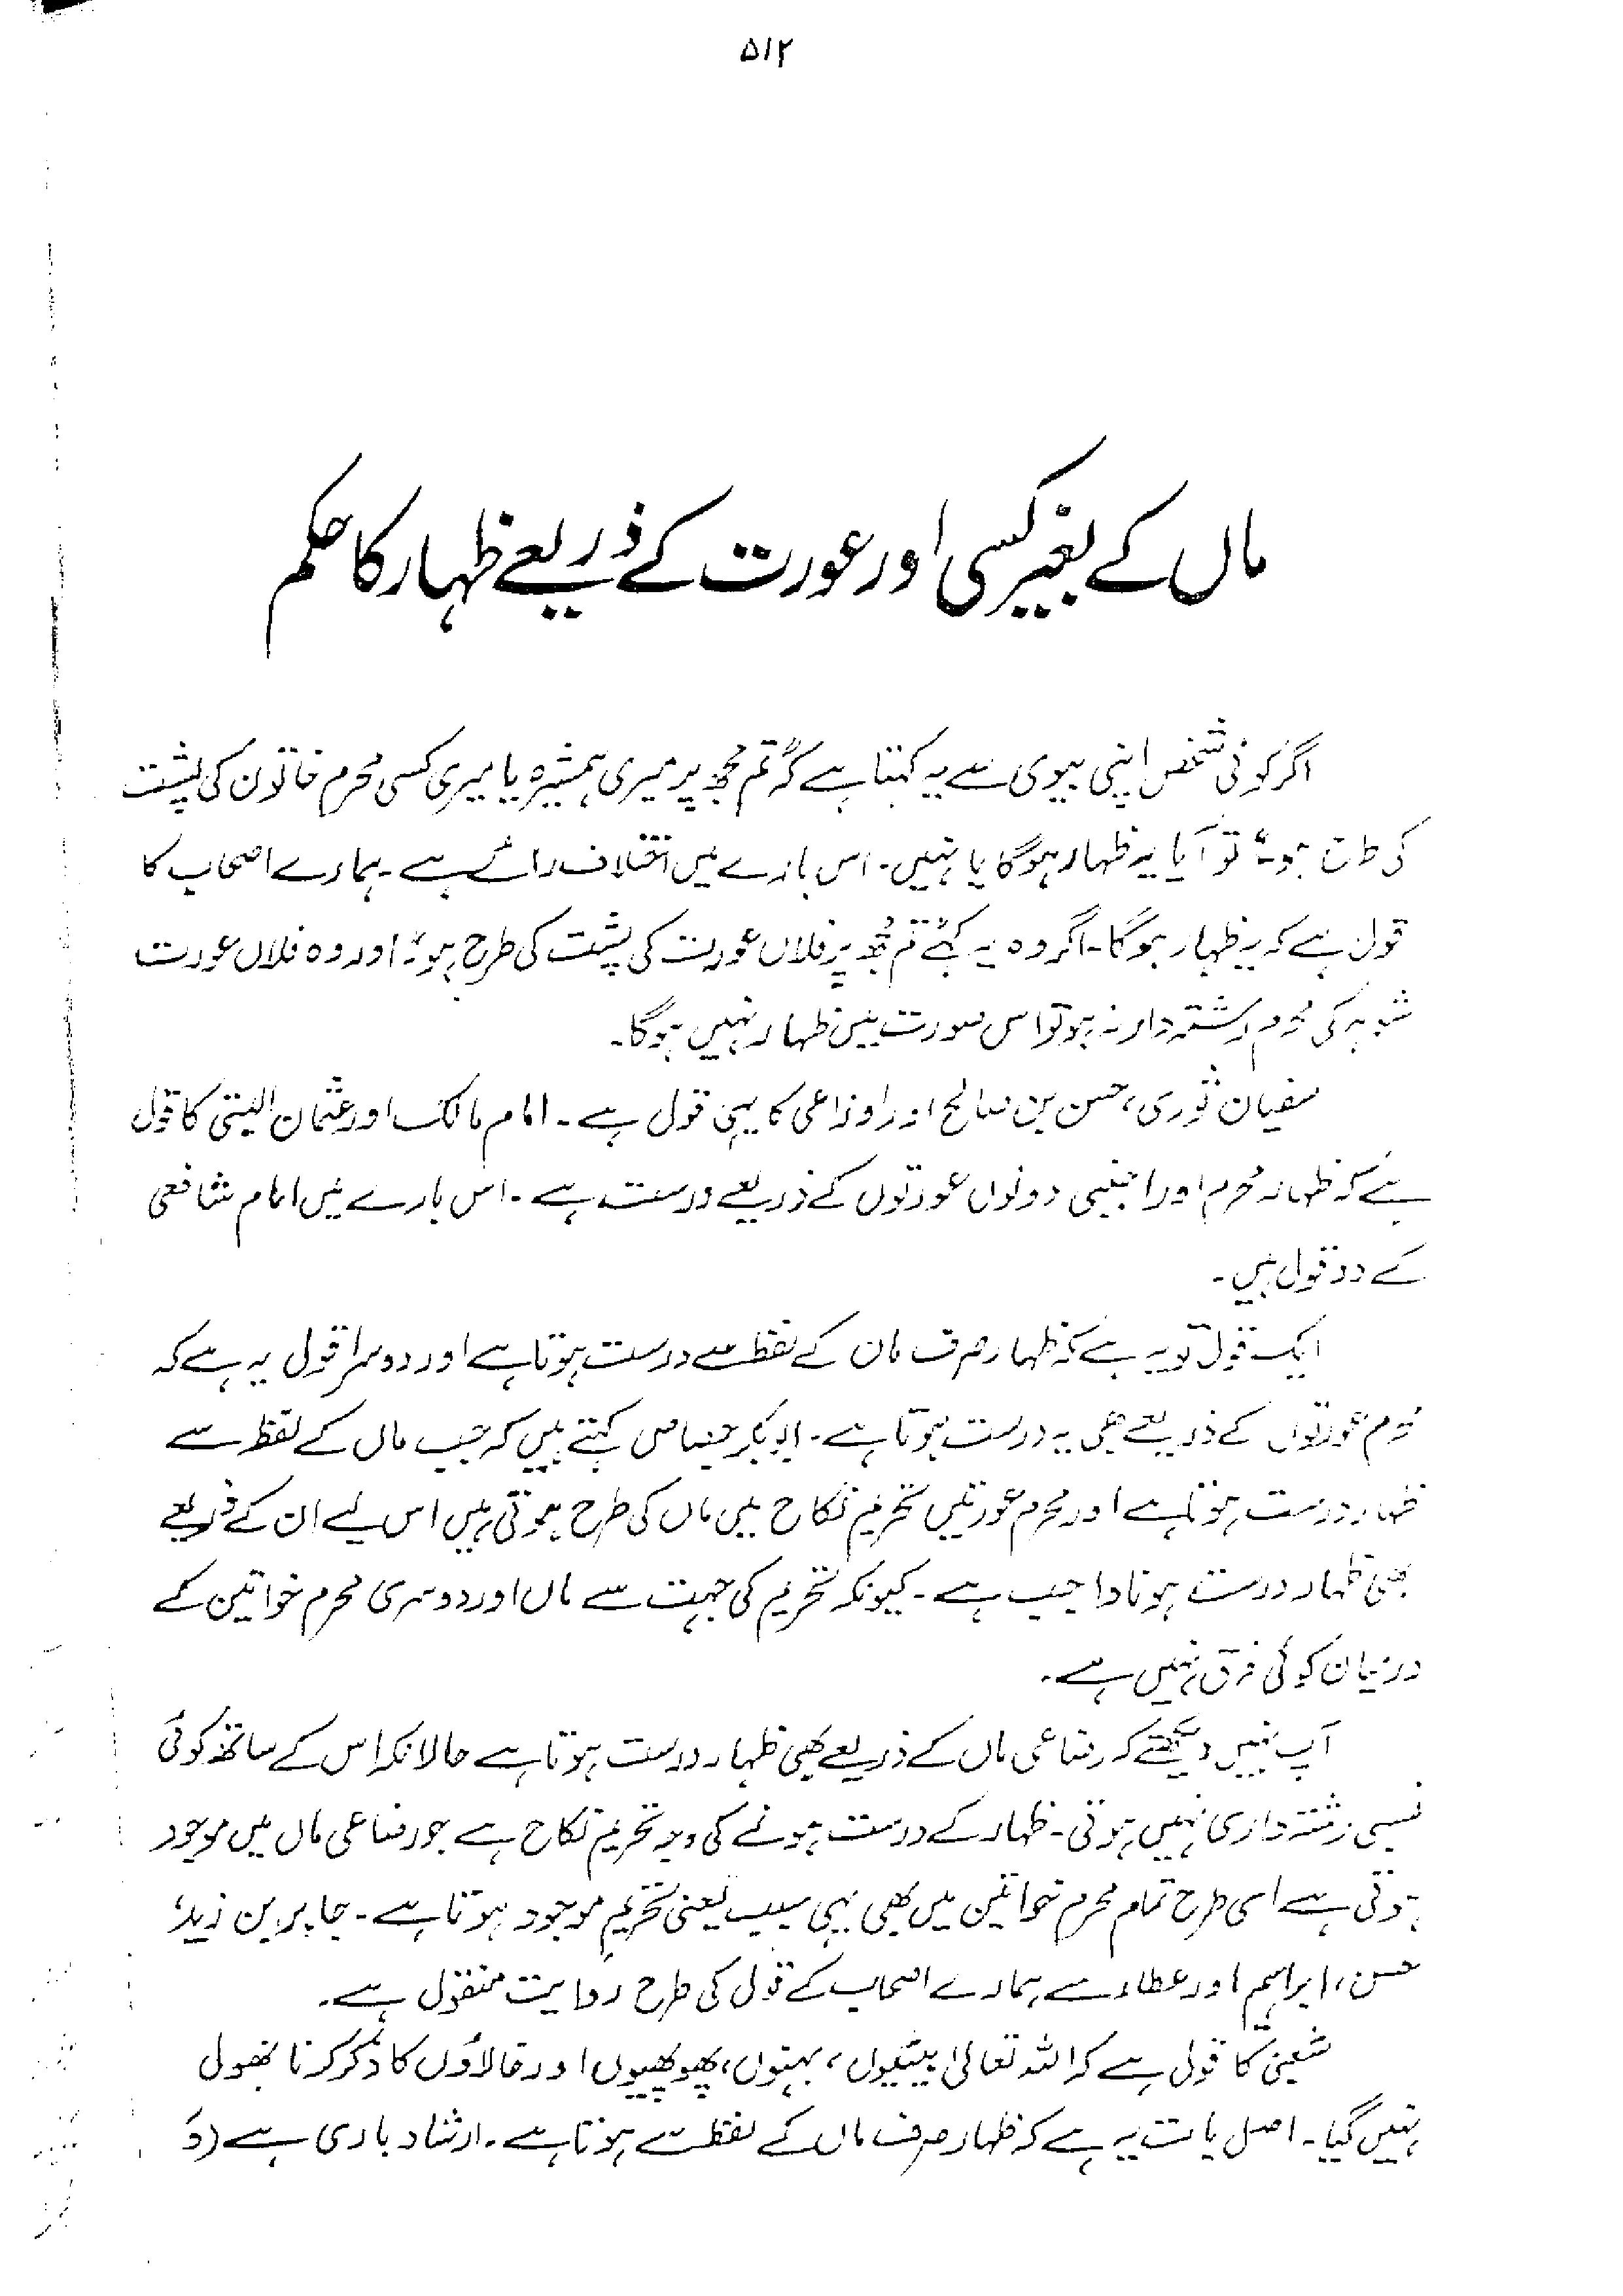 ۵۱۲
ماں کے بغیر کسی اور عورت کے ذریعے ظہار کا حکم
اگر کوئی شخص اپنی بیوی سے یہ کہتا ہے کہ "تم مجھ پر میری ہمشیرہ یا میری کسی محرم خاتون کی پشت
کی طرح ہو" تو آیا یہ ظہار ہوگا یا نہیں۔ اس بارے میں اختلاف رائے ہے۔ ہمارے اصحاب کا
قول ہے کہ یہ ظہار ہوگا۔ اگر وہ یہ کہے "تم مجھ پر فلاں عورت کی پشت کی طرح ہو" اور وہ فلاں عورت
شوہر کی محرم رشتہ دار نہ ہو تو اس صورت میں ظہار نہیں ہوگا۔
سفیان ثوری، حسن بن صالح اور اوزاعی کا یہی قول ہے۔ امام مالک اور عثمان البتی کا قول
ہے کہ ظہار محرم اور اجنبی دونوں عورتوں کے ذریعے درست ہے۔ اس بارے میں امام شافعی
کے دو قول ہیں۔
ایک قول تو یہ ہے کہ ظہار صرف ماں کے لفظ سے درست ہوتا ہے اور دوسرا قول یہ ہے کہ
محرم عورتوں کے ذریعے بھی یہ درست ہوتا ہے۔ ابوبکر جصاص کہتے ہیں کہ جب ماں کے لفظ سے
ظہار درست ہوتا ہے اور محرم عورتیں تحریم نکاح میں ماں کی طرح ہوتی ہیں اس لیے ان کے ذریعے
بھی ظہار درست ہونا واجب ہے۔ کیونکہ تحریم کی جہت سے ماں اور دوسری محرم خواتین کے
درمیان کوئی فرق نہیں ہے۔
آپ نہیں دیکھتے کہ رضاعی ماں کے ذریعے بھی ظہار درست ہوتا ہے حالانکہ اس کے ساتھ کوئی
نسبی رشتہ داری نہیں ہوتی۔ ظہار کے درست ہونے کی وجہ تحریم نکاح ہے جو رضاعی ماں میں موجود
ہوتی ہے اسی طرح تمام محرم خواتین میں بھی یہی سبب یعنی تحریم موجود ہوتا ہے۔ جابر بن زید،
حسن، ابراہیم اور عطاء سے ہمارے اصحاب کے قول کی طرح روایت منقول ہے۔
شعبی کا قول ہے کہ اللہ تعالیٰ بیٹیوں، بہنوں، پھوپھیوں اور خالاؤں کا ذکر کرنا بھول
نہیں گیا۔ اصل بات یہ ہے کہ ظہار صرف ماں کے لفظ سے ہوتا ہے۔ ارشاد باری ہے (وَ